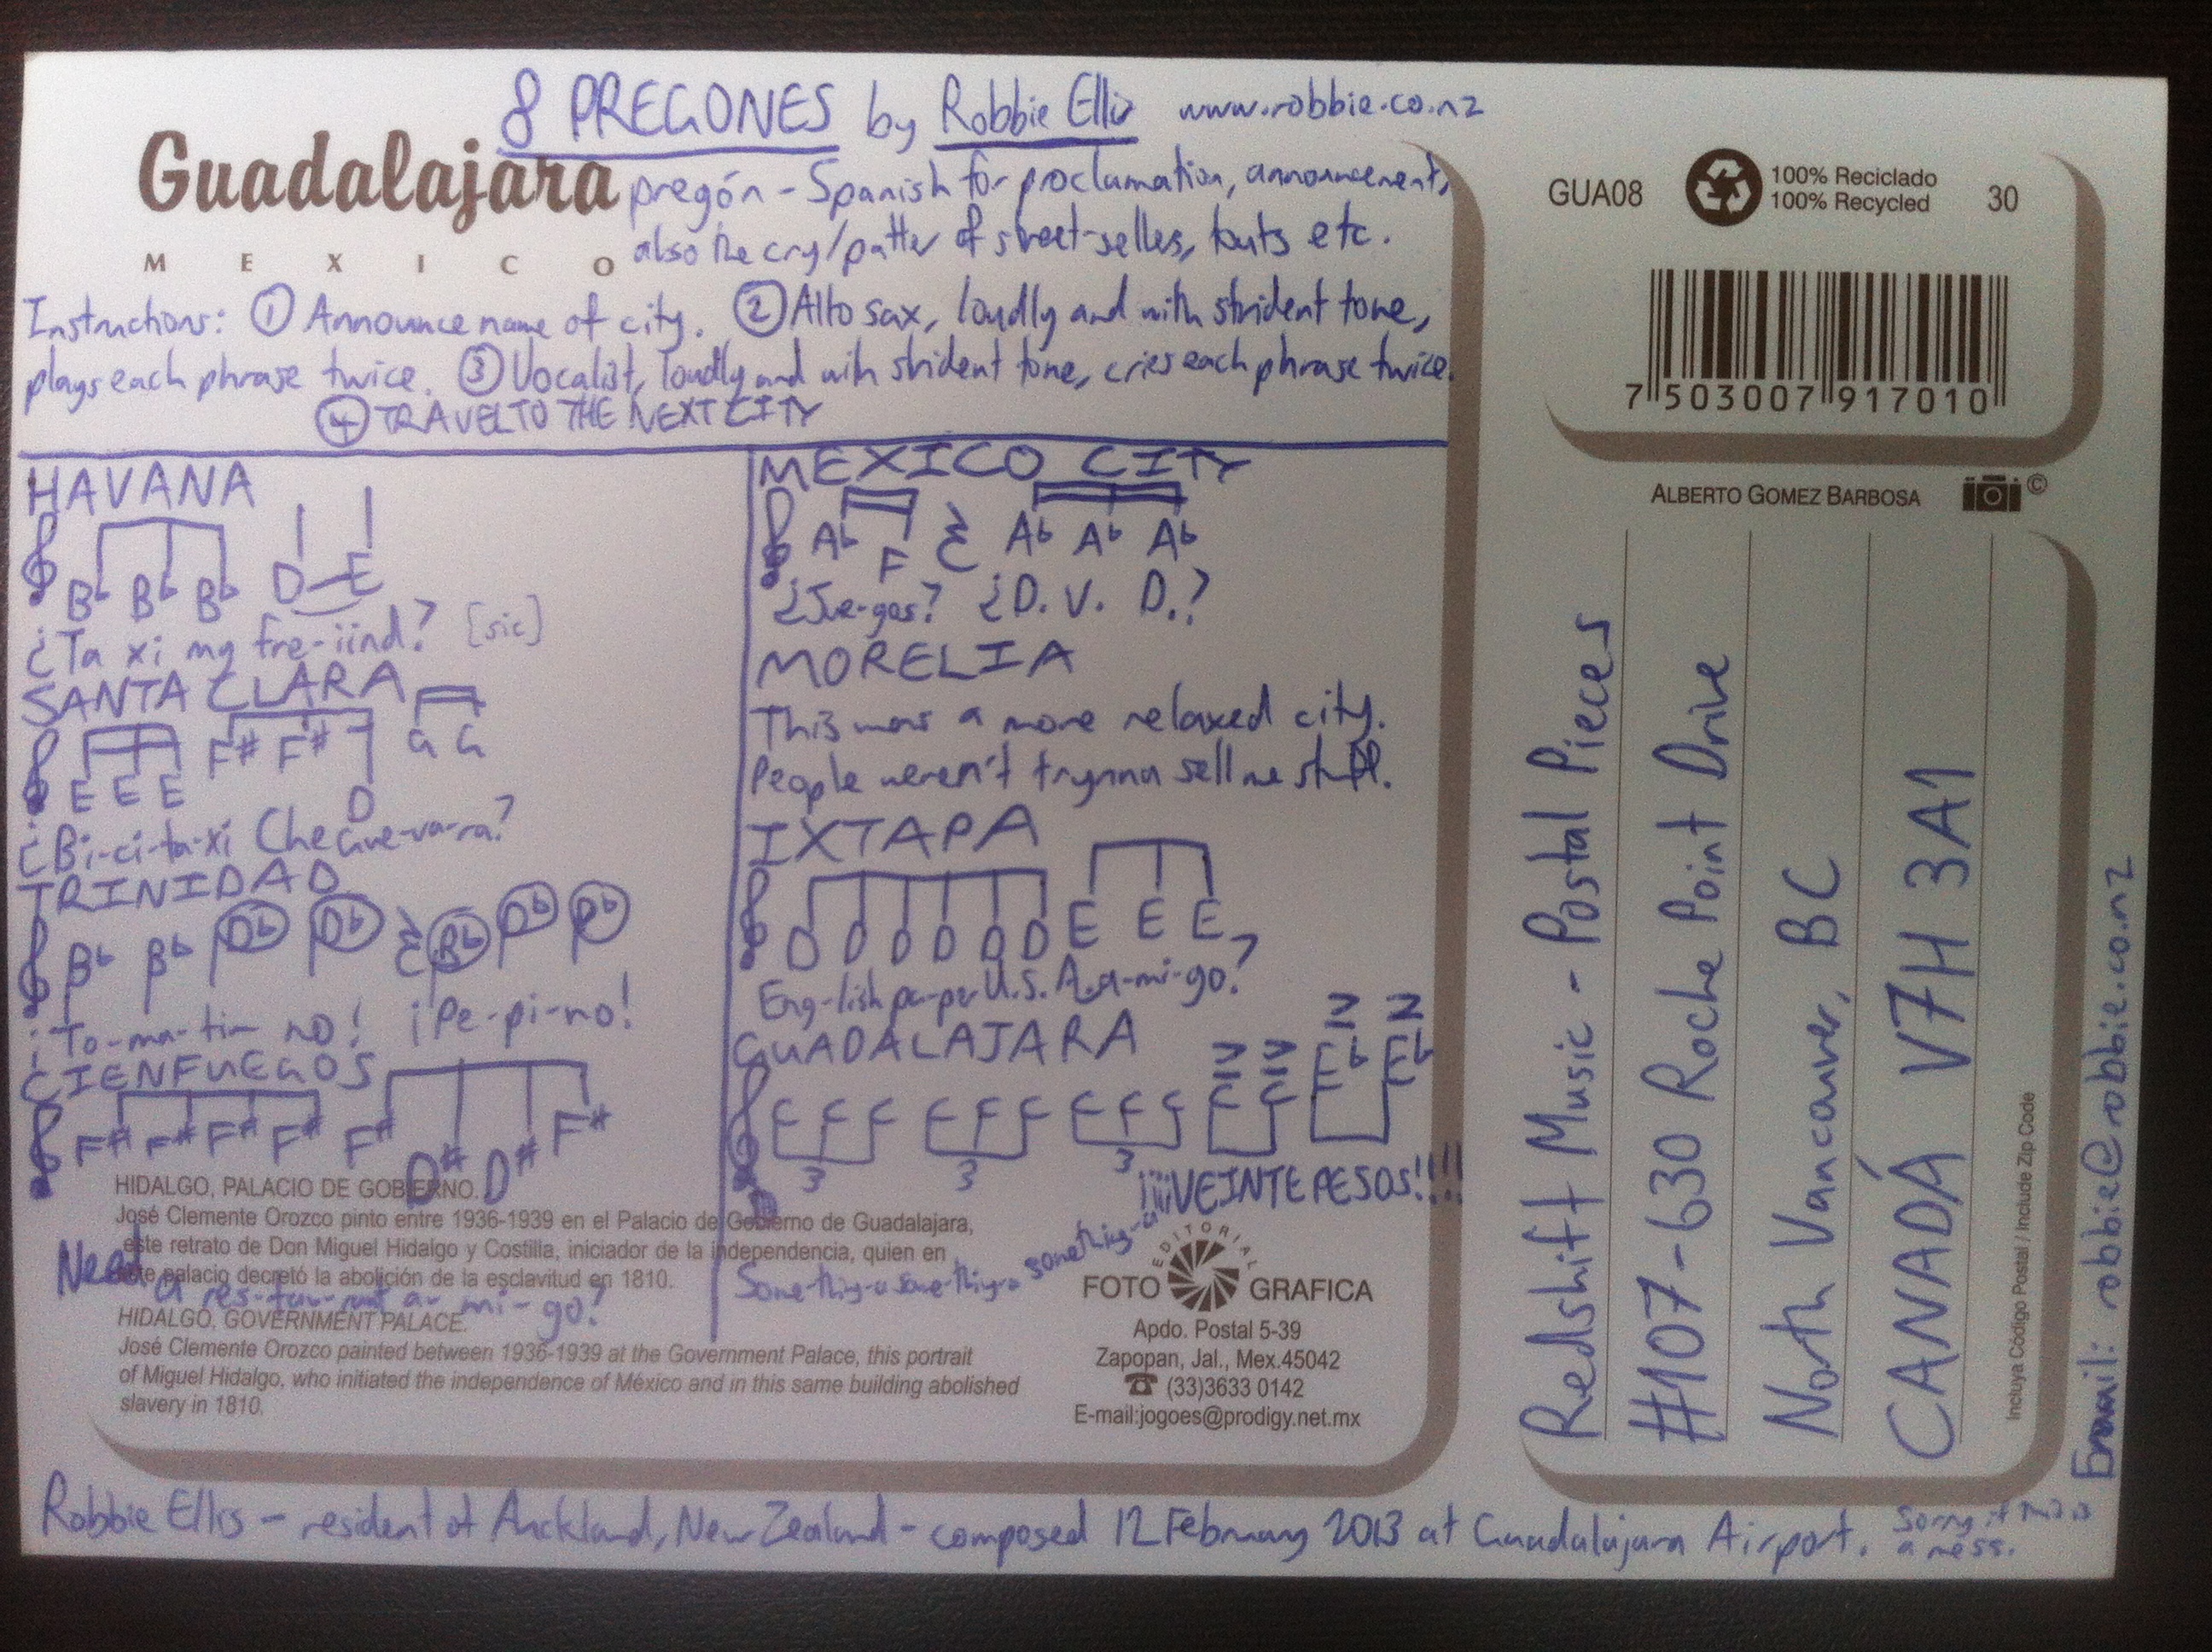 8 PREGONES by Robbie Ellis www.robbie.co.nz
Guadalajara
MEXICO
pregón - Spanish for proclamation, announcement,
also the cry/patter of street-sellers, touts etc.
Instructions: ① Announce name of city. ② Alto sax, loudly and with strident tone,
plays each phrase twice. ③ Vocalist, loudly and with strident tone, cries each phrase twice.
④ TRAVEL TO THE NEXT CITY
HAVANA
B♭ B♭ B♭ D E
¿Ta xi my fre-iind? [sic]
SANTA CLARA
E E E F# F# D G G
¿Bi-ci-ta-xi Che Gue-va-ra?
TRINIDAD
B♭ B♭ D♭ D♭ B♭ D♭ D♭
¡To-ma-tim NO! ¡Pe-pi-no!
CIENFUEGOS
F# F# F# F# F# D# D# F#
Need a res-tau-rant a-mi-go?
MEXICO CITY
A♭ F A♭ A♭ A♭
¿Jue-gos? ¿D. V. D.?
MORELIA
This was a more relaxed city.
People weren't trynna sell me stuff.
IXTAPA
D D D D D D E E E
Eng-lish pa-per U.S.A. a-mi-go?
GUADALAJARA
C C C C C C C C C C C E♭ E♭
3 3 3
Something-a something-a something-a
¡¡¡¡VEINTE PESOS!!!!
HIDALGO, PALACIO DE GOBIERNO.
José Clemente Orozco pinto entre 1936-1939 en el Palacio de Gobierno de Guadalajara,
este retrato de Don Miguel Hidalgo y Costilla, iniciador de la independencia, quien en
este palacio decretó la abolición de la esclavitud en 1810.
HIDALGO, GOVERNMENT PALACE.
José Clemente Orozco painted between 1936-1939 at the Government Palace, this portrait
of Miguel Hidalgo, who initiated the independence of México and in this same building abolished
slavery in 1810.
EDITORIAL
FOTO GRAFICA
Apdo. Postal 5-39
Zapopan, Jal., Mex.45042
☎ (33)3633 0142
E-mail:jogoes@prodigy.net.mx
Robbie Ellis - resident of Auckland, New Zealand - composed 12 February 2013 at Guadalajara Airport. Sorry if this is
a mess.
GUA08
100% Reciclado
100% Recycled
30
7 503007 917010
ALBERTO GOMEZ BARBOSA ©
Redshift Music - Postal Pieces
#107-630 Roche Point Drive
North Vancouver, BC
CANADÁ V7H 3A1
Incluya Código Postal / Include Zip Code
Email: robbie@robbie.co.nz